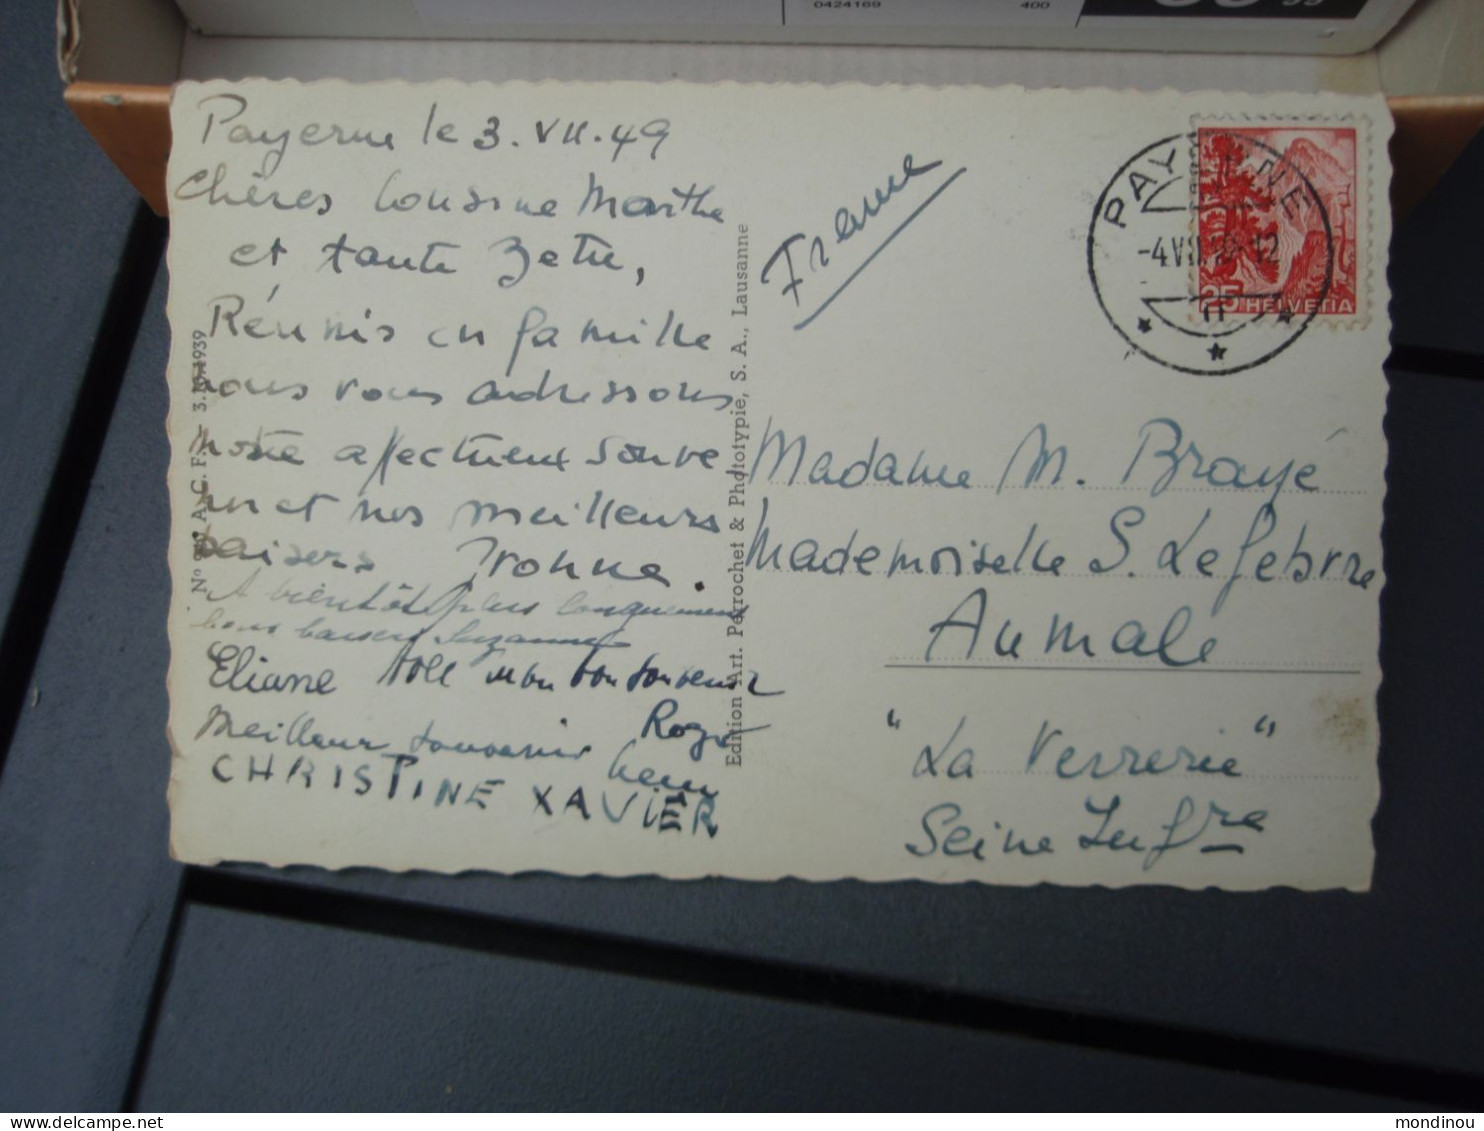 0424169 400
Payerne le 3. VII. 49
Chères Cousine Marthe
et tante Zette,
Réunis en famille
nous vous adressons
notre affectueux souve
nir et nos meilleurs
baisers Yvonne.
A bientôt plus longuement
bons baisers Suzanne
Eliane mon bon souvenir
Meilleur souvenir Roger
CHRISTINE XAVIER
3.10.1939
Edition Art. Perrochet & Phototypie, S. A., Lausanne
France
PAYERNE
-4.VII.49-12
25 HELVETIA
Madame M. Brayé
Mademoiselle S. Lefebvre
Aumale
"La Verrerie"
Seine Infre
mondinou